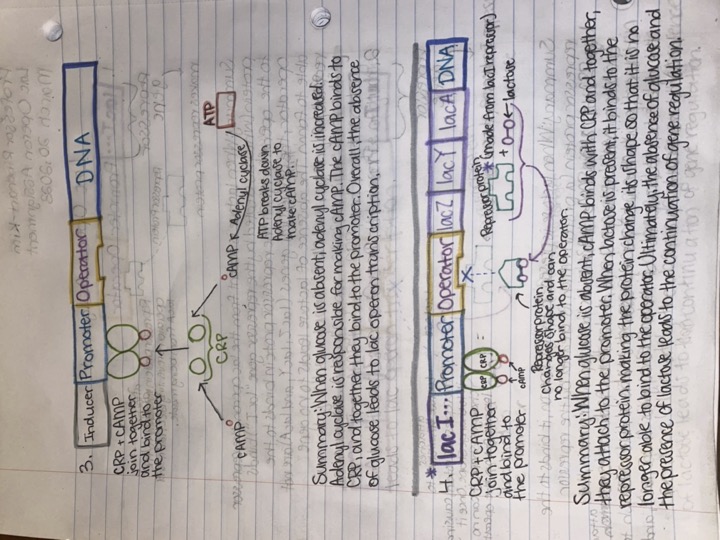 3. Inducer Promoter Operator DNA
CRP + cAMP
join together
and bind to
the promoter
cAMP
CRP
cAMP
Adenyl cyclase
ATP
ATP breaks down
Adenyl cyclase to
make cAMP.
Summary: When glucose is absent, adenyl cyclase is increased.
Adenyl cyclase is responsible for making cAMP. The cAMP binds to
CRP, and together they bind to the promoter. Overall, the absence
of glucose leads to lac operon transcription.
*
4. lac I... Promoter Operator lacZ lacY lacA DNA
CRP + cAMP
join together
and bind to
the promoter.
CRP CRP
cAMP
X
Repressor protein
* (made from lacI repressor)
+ lactose
Repressor protein
changes shape and can
no longer bind to the operator.
Summary: When glucose is absent, cAMP binds with CRP and together,
they attach to the promoter. When lactose is present, it binds to the
repression protein, making the protein change its shape so that it is no
longer able to bind to the operator. Ultimately, the absence of glucose and
the presence of lactose leads to the continuation of gene regulation.